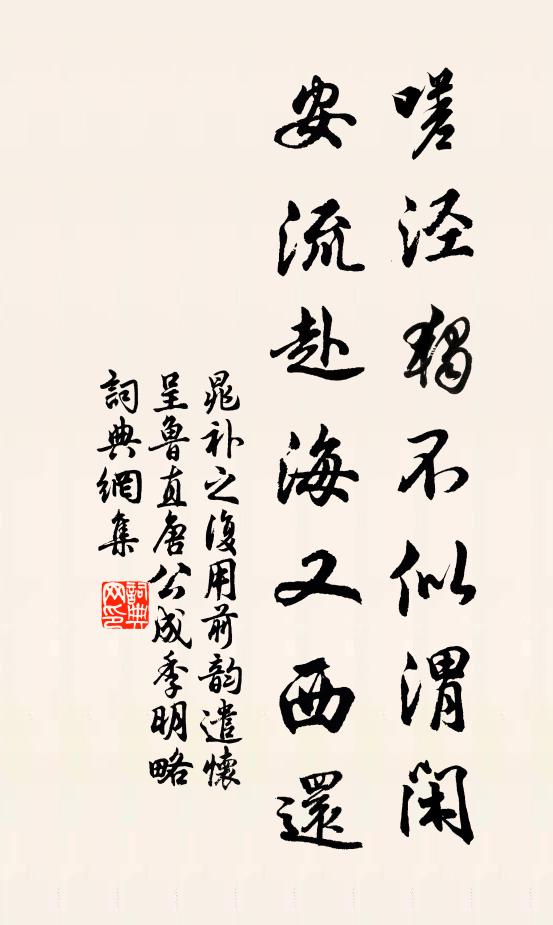 嗟泾獨不似渭閑
安流赴海又西還
晁补之復用前韵遣懷
呈魯直唐公成季明略
詞典網集
詞典
网印